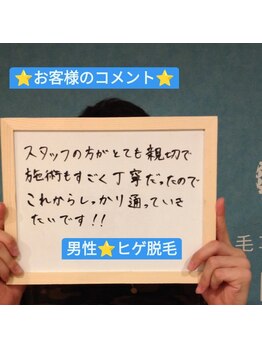 ⭐お客様のコメント⭐
スタッフの方がとても親切で
施術もすごく丁寧だったので
これからしっかり通っていき
たいです!!
男性⭐ヒゲ脱毛
毛